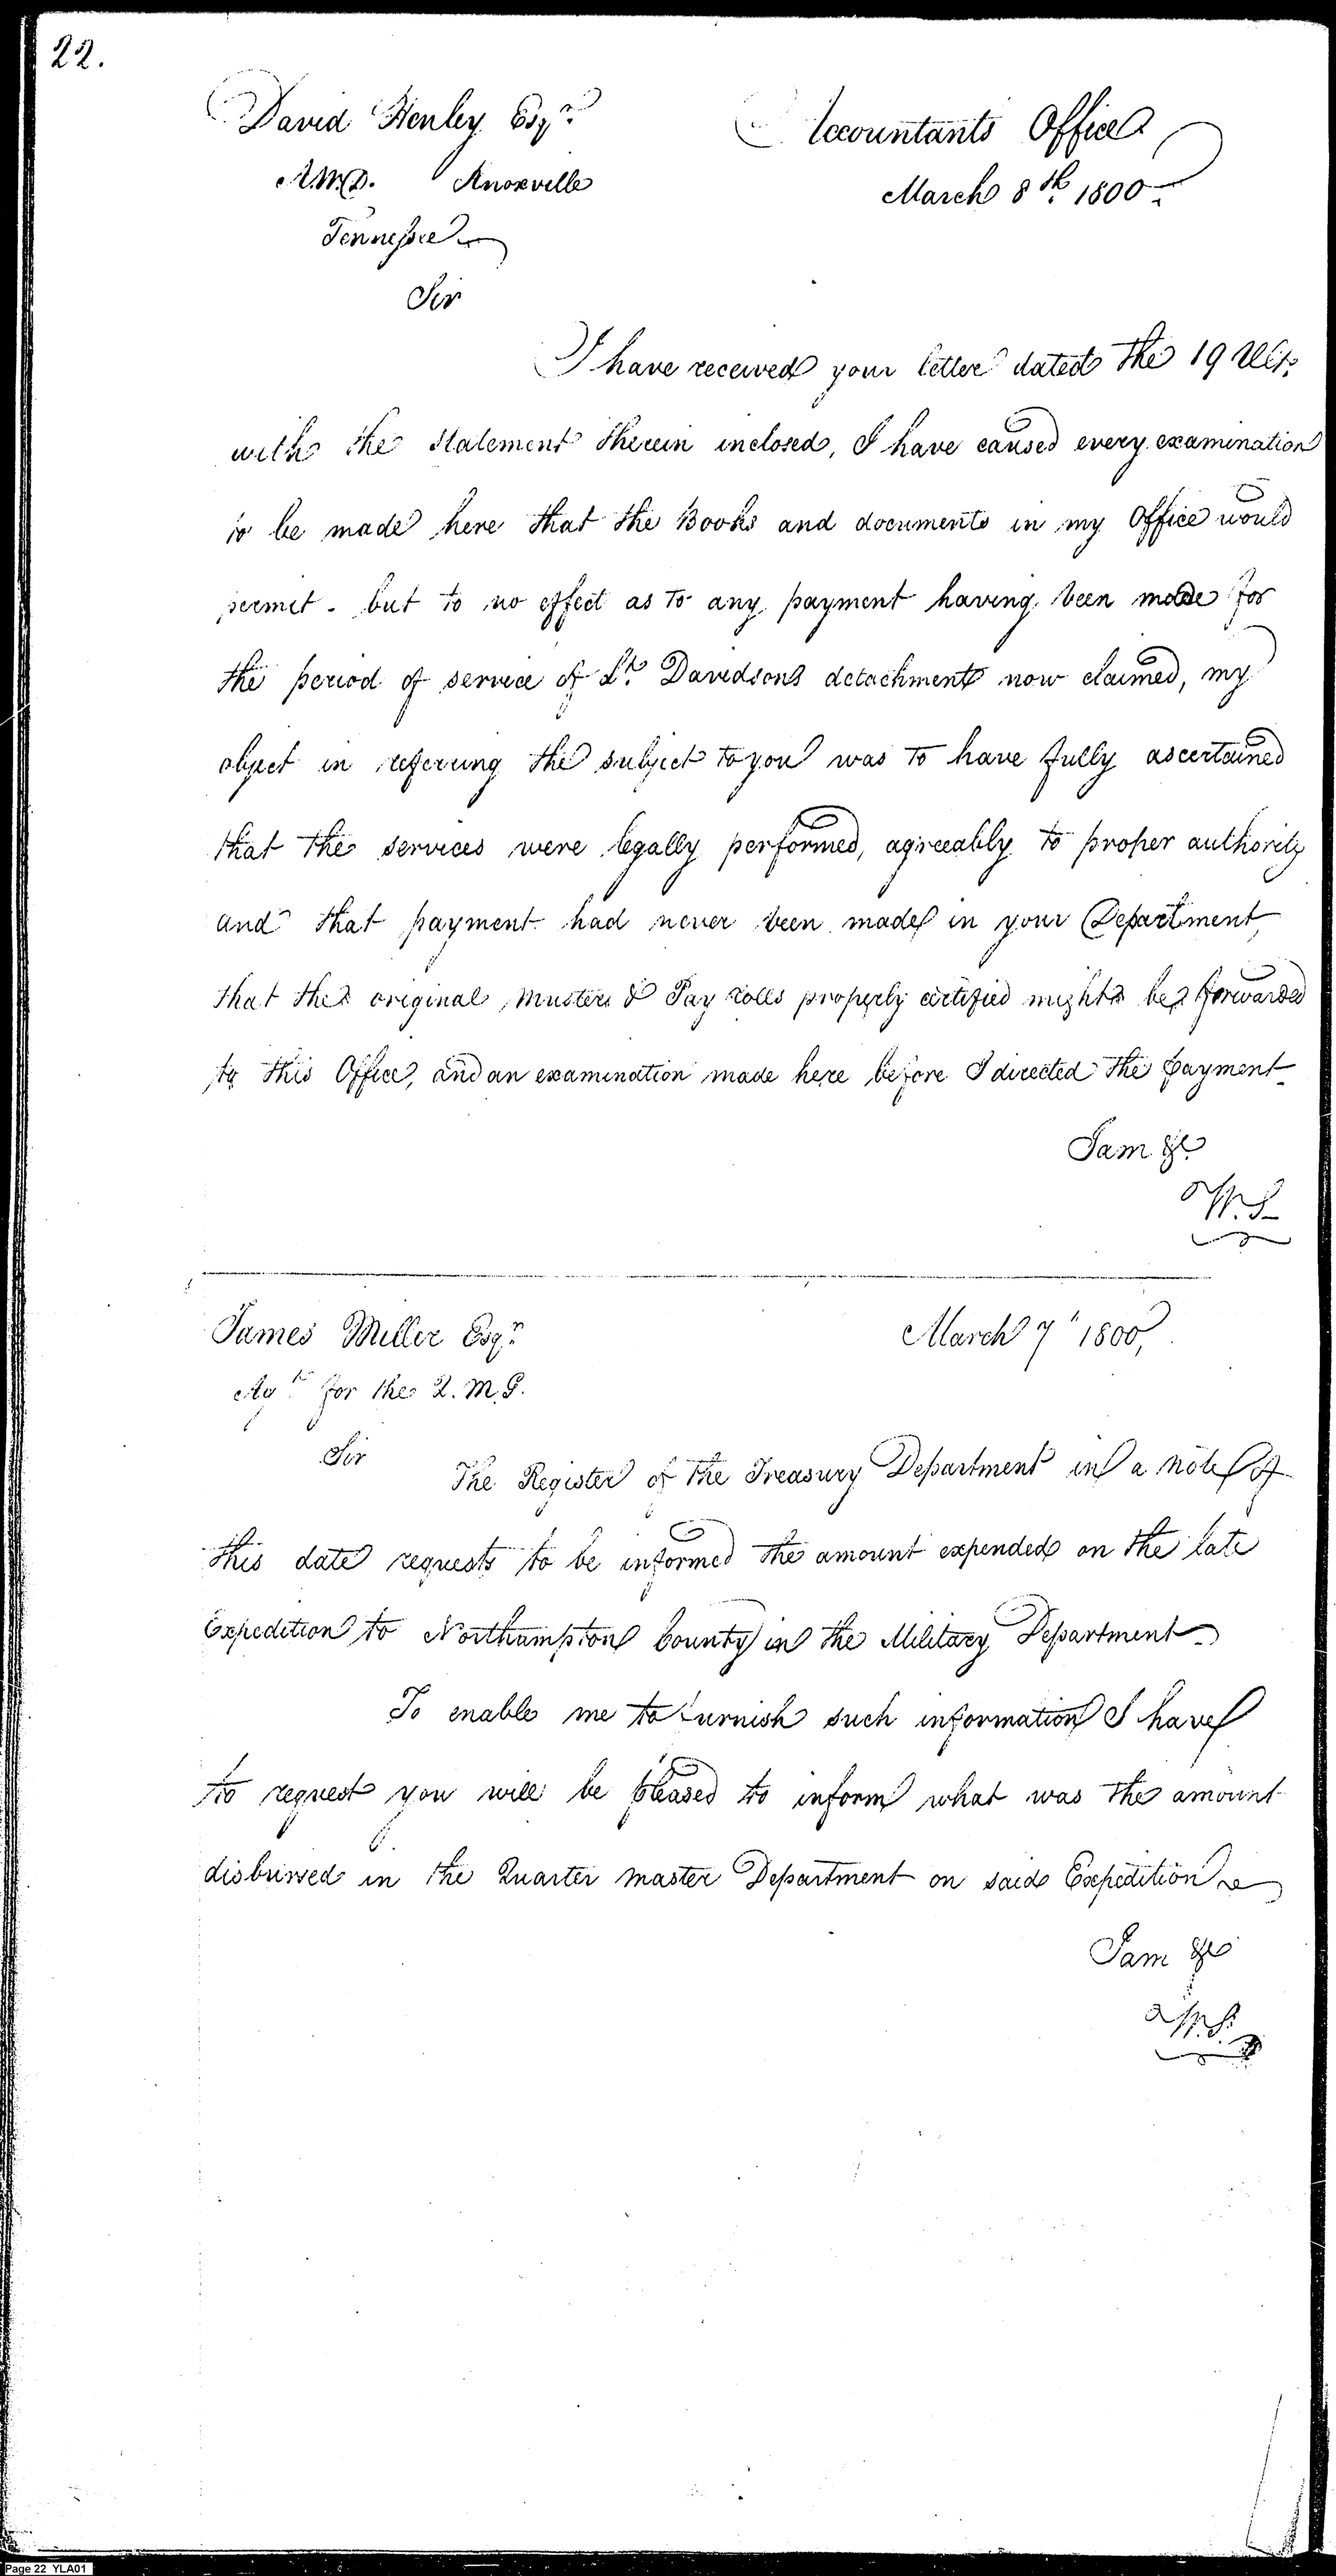 22.
David Henley Esqr.
A.W.D. Knoxville
Tennessee
Accountants Office
March 8th. 1800.
Sir
I have received your letter dated the 19 Ult.
with the statement therein inclosed, I have caused every examination
to be made here that the Books and documents in my Office would
permit - but to no effect as to any payment having been made for
the period of service of Lt. Davidsons detachment now claimed, my
object in refering the subject to you was to have fully ascertained
that the services were legally performed, agreeably to proper authority
and that payment had never been made in your Department,
that the original Musters & Pay rolls properly certified might be forwarded
to this Office, and an examination made here before I directed the payment.
I am &c.
W.S.
James Miller Esqr.
March 7th 1800,
Agt. for the Q.M.G.
Sir
The Register of the Treasury Department in a note of
this date requests to be informed the amount expended on the late
Expedition to Northampton County in the Military Department.
To enable me to furnish such information I have
to request you will be pleased to inform what was the amount
disbursed in the Quarter master Department on said Expedition
I am &c
W.S.
Page 22 YLA01